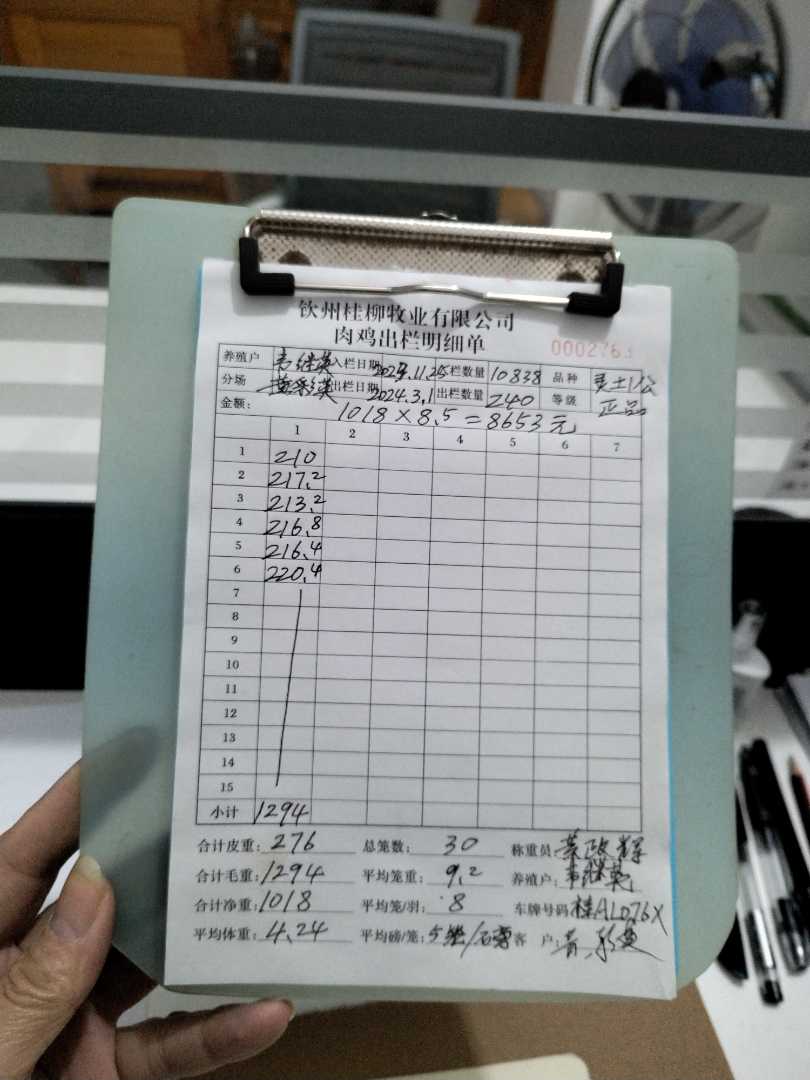 钦州桂柳牧业有限公司
肉鸡出栏明细单
000276
养殖户 韦继英 入栏日期 2023.11.25 入栏数量 10838 品种
分场 出栏日期 2024.3.1 出栏数量 240 等级 正品
金额: 1018×8.5=8653元
1 2 3 4 5 6 7
1 210
2 217.2
3 213.2
4 216.8
5 216.4
6 220.4
7
8
9
10
11
12
13
14
15
小计 1294
合计皮重: 276 总笼数: 30 称重员:
合计毛重: 1294 平均笼重: 9.2 养殖户: 韦继英
合计净重: 1018 平均笼/羽: 8 车牌号码 桂AL076X
平均体重: 4.24 平均磅/笼: 5笼/磅 客户: